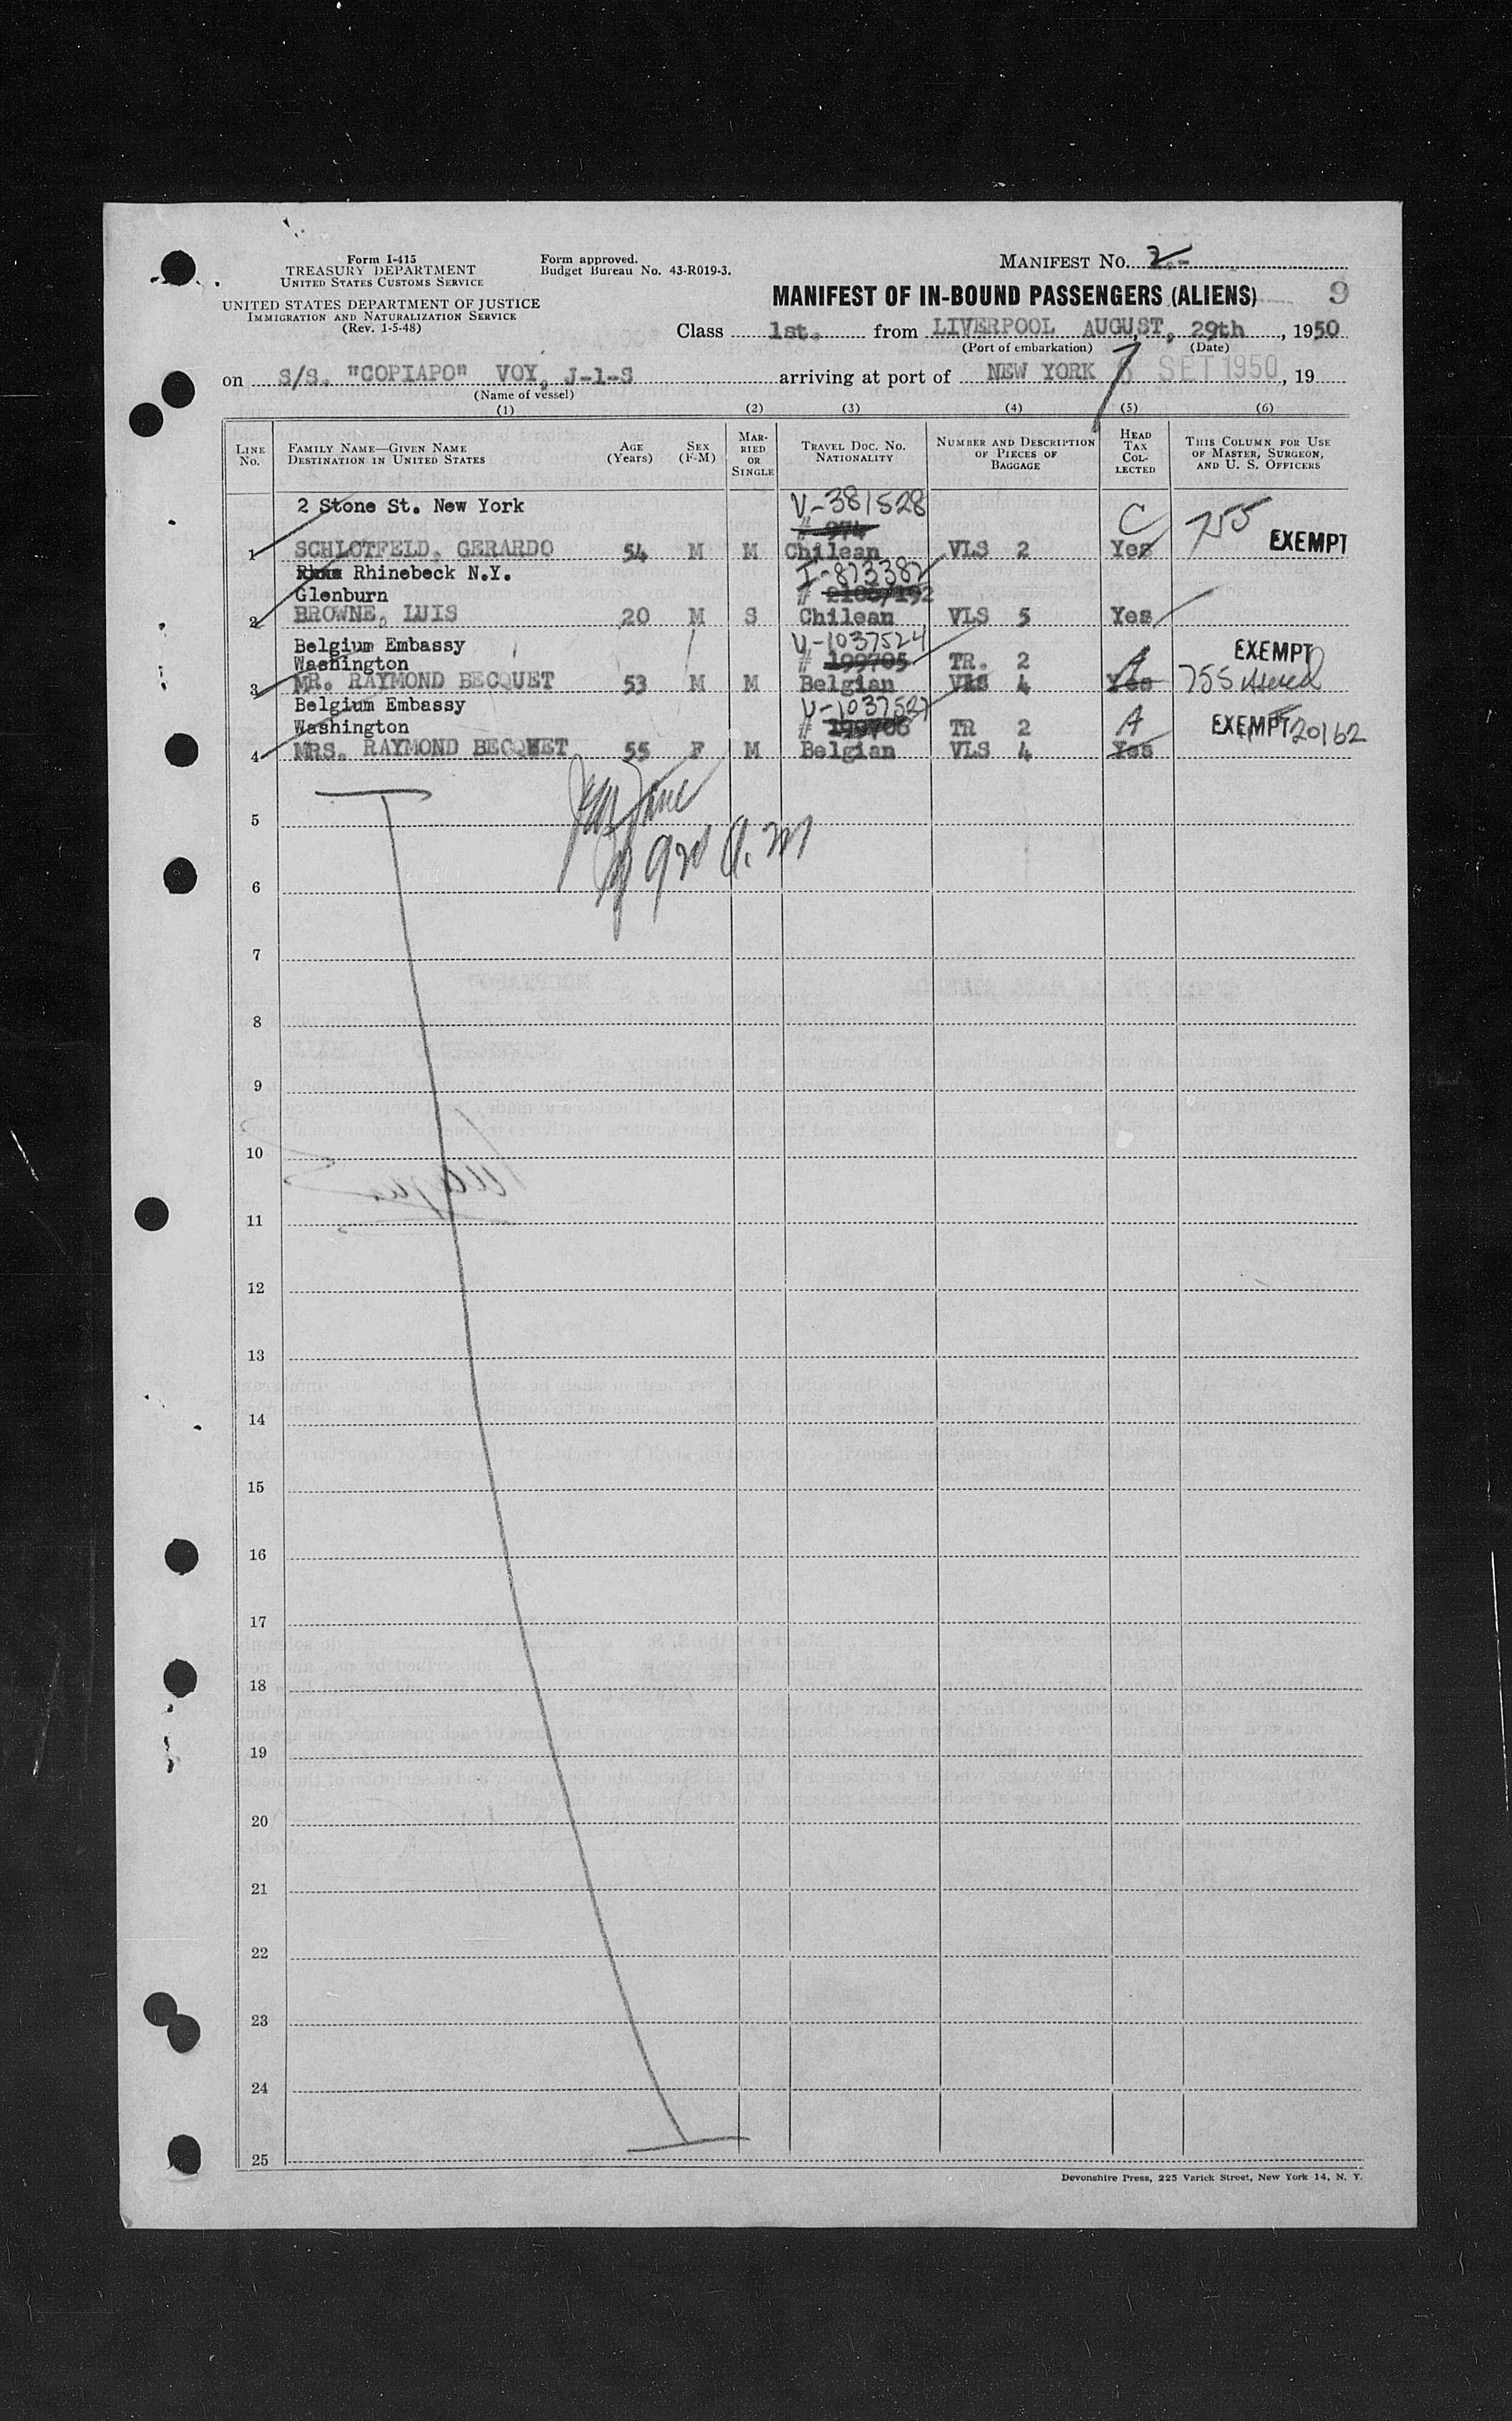 Form I-415
TREASURY DEPARTMENT
UNITED STATES CUSTOMS SERVICE
UNITED STATES DEPARTMENT OF JUSTICE
IMMIGRATION AND NATURALIZATION SERVICE
(Rev. 1-5-48)
Form approved.
Budget Bureau No. 43-R019-3.
MANIFEST NO. 2.-
MANIFEST OF IN-BOUND PASSENGERS (ALIENS) 9
Class 1st. from LIVERPOOL AUGUST, 29th, 1950
(Port of embarkation) (Date)
on S/S. "COPIAPO" VOY, J-1-S arriving at port of NEW YORK 7 SET 1950, 19
(Name of vessel)
(1) (2) (3) (4) (5) (6)
LINE NO.
FAMILY NAME—GIVEN NAME
DESTINATION IN UNITED STATES
AGE (Years)
SEX (F-M)
MARRIED OR SINGLE
TRAVEL DOC. NO.
NATIONALITY
NUMBER AND DESCRIPTION OF PIECES OF BAGGAGE
HEAD TAX COLLECTED
THIS COLUMN FOR USE OF MASTER, SURGEON, AND U. S. OFFICERS
2 Stone St. New York V-381528
# 974 C 755
1 SCHLOTFELD, GERARDO 54 M M Chilean VLS 2 Yes EXEMPT
Rhinebeck N.Y. I-873387
Glenburn #
2 BROWNE, LUIS 20 M S Chilean VLS 5 Yes
Belgium Embassy V-1037524 EXEMPT
Washington # 199705 TR. 2 A
3 MR. RAYMOND BECQUET 53 M M Belgian VLS 4 Yes 755
Belgium Embassy V-1037527
Washington # 199706 TR 2 A EXEMPT 20162
4 MRS. RAYMOND BECQUET 55 F M Belgian VLS 4 Yes
5
6
7
8
9
10
11
12
13
14
15
16
17
18
19
20
21
22
23
24
25
Devonshire Press, 225 Varick Street, New York 14, N. Y.